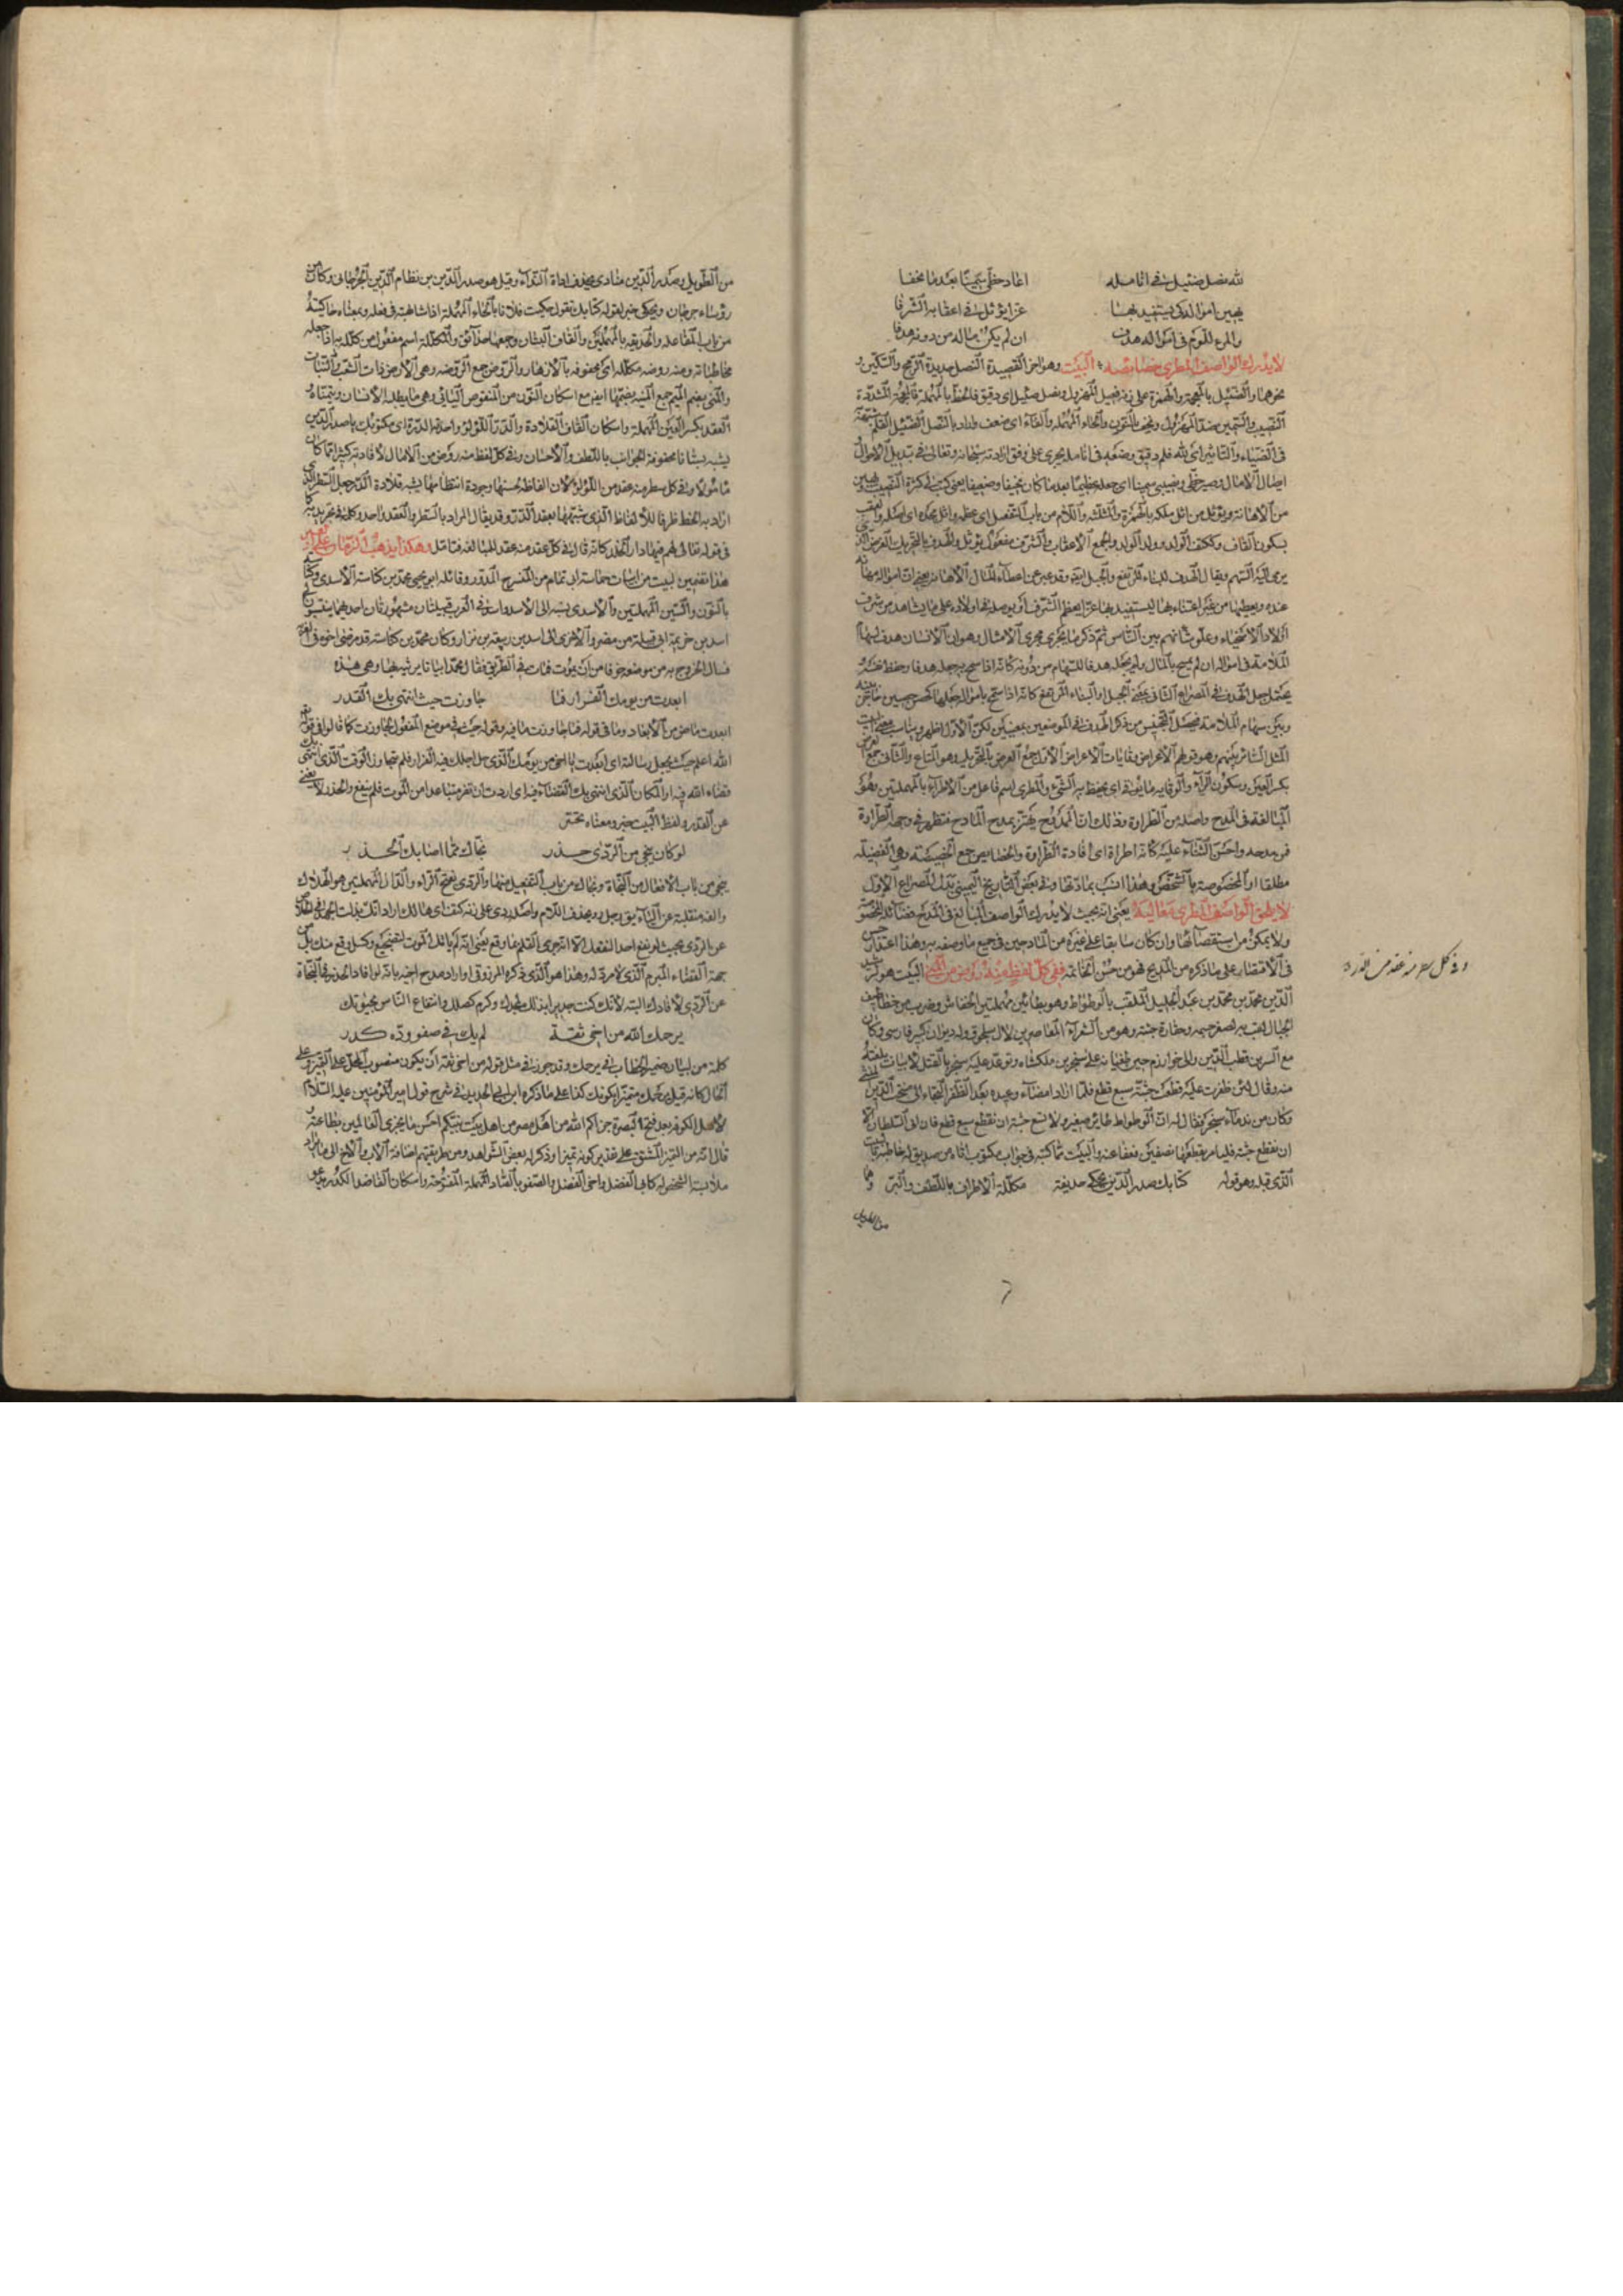 لله نصل ضئيل في انامله اعاد حظي سمينا بعد ما نحفا
يهين امواله كي يستفيد بها عزا يؤثل في اعقابه الشرفا
والمرء للؤم في امواله هدف ان لم يكن ماله من دونه هدفا
لا يدرك الواصف المطري خصائصه البيت وهو اخر القصيدة النصل حديدة الرمح والسكين و
نحوهما والضئيل بالمعجمة والهمزة على زنة فعيل المهزول ونصل ضئيل اي دقيق فلحظ بالمهملة فالمعجمة المشددة
النصيب والسمين ضد المهزول ونحف بالنون والحاء المهملة والفاء اي ضعف والمراد بالنصل الضئيل القلم
في المضاء والتاثير اي لله قلم دقيق وضعيف في انامله يجري على وفق ارادته سبحانه وتعالى في تبديل الاحوال
من الاهانة ويؤثل من اثل ملكه بالهمزة والمثلثة واللام من باب التفعيل اي عظمه واثل مجده اي اصله والعقب
بسكون القاف وككتف الولد وولد الولد والجمع الاعقاب والشرف مفعول يؤثل والهدف بالتحريك الغرض الذي
يرمى اليه السهم ويقال الهدف للبناء المرتفع والجبل ايضا وقد عبر عن اعطاء المال الاهانة
عنده ويعطيها من غير اعتناء بها ليستفيد بها عزا يعظم الشرف
اولاد الاسخياء وعلو شانهم بين الناس ثم ذكر ما يجري مجرى الامثال وهو ان الانسان هدف لسهام
الملامة في امواله ان لم يسمح بالمال ولم يجعله هدفا للسهام من دونه كانه اذا سمح به جعله هدفا وحفظ عرضه
يحتمل جعل الهدف في المصراع الثاني بمعنى الجبل او البناء المرتفع كانه اذا سمح بامواله جعلها كحصن حصين حاجز بينه
وبين سهام الملامة فيحصل التجنيس من ذكر الهدف في الموضعين بمعنيين لكن الاول اظهر ويناسب معنى البيت
المثل السائر بينهم وهو قولهم الاعراض وقايات الاعراض الاول جمع العرض بالتحريك وهو المتاع والثاني جمع العرض
بكسر العين وسكون الراء والوقاية ما يوقى به اي يحفظ به الشيء والمطري اسم فاعل من الاطراء بالمهملتين وهو
المبالغة في المدح واصله من الطراوة وذلك ان الممدوح يهتز بمدح المادح فتظهر في وجهه الطراوة
فمن مدحه واحسن الثناء عليه كانه اطراه اي افاده الطراوة والخصائص جمع الخصيصة وهي الفضيلة
مطلقا او المخصوصة بالشخص وهذا انسب بمادتها وفي بعض التاريخ اليميني بدل المصراع الاول
لا يلحق الواصف المطري معاليه يعني انه بحيث لا يدرك الواصف المبالغ في المدح فضائله المخصوصة
ولا يمكنه من استقصائها وان كان سابقا على غيره من المادحين في جميع ما وصفه به وهذا اعتذار حسن
في الاقتصار على ما ذكره من المديح فهو من حسن الخاتمة ففي كل لفظ منه روض من المنى البيت هو لرشيد
الدين محمد بن محمد بن عبد الجليل الملقب بالوطواط وهو بطائين مهملتين الخفاش وضرب من خطاطيف
الجبال لقب به لصغر جسمه وحقارة جثته وهو من الشعراء المعاصرين لال سلجوق وله ديوان كبير فارسي وكان
مع اتسز بن قطب الدين والي خوارزم حين طغيانه على سنجر بن ملكشاه وتوعد عليه سنجر بالقتل لابيات بلغته
منه وقال لئن ظفرت عليه قطعت جثته سبع قطع فلما اراد امضاء وعيده بعد الظفر التجا الى منتجب الدين المنشي
وكان من ندماء سنجر فقال له ان الوطواط طائر صغير ولا تسع جثته ان تقطع سبع قطع فان
ان نقطع جثته فليامر بقطعها نصفين فعفا عنه والبيت مما كتبه في جواب مكتوب اتاه من صديق له
الذي قبله وهو قوله كتابك صدر الدين يحكي حديقة مكللة الاطراف باللطف والبر وهما
من الطويل
وفي كل سطر منه عقد من الدرر
من الطويل وصدر الدين منادى بحذف اداة النداء وقيل هو صدر الدين بن نظام الدين الجرجاني وكان من
رؤساء جرجان ويحكي خبر لقوله كتابك تقول حكيت فلانا بالحاء المهملة اذا شابهته في فعله ومعناه حاكيته
من باب المفاعلة والحديقة بالمهملتين والقاف البستان وجمعها حدائق والمكللة اسم مفعول من كلله به اذا جعله
محاطا به ومنه روضة مكللة اي محفوفة بالازهار والروض جمع الروضة وهي الارض ذات الشعب والنبات
والمنى بضم الميم جمع المنية بضمها ايضا مع اسكان النون من المنقوص اليائي وهي ما يطلبه الانسان ويتمناه و
العقد بكسر العين المهملة واسكان القاف القلادة والدرر اللؤلؤ واحدها الدرة اي مكتوبك يا صدر الدين
يشبه بستانا محفوفة الجوانب باللطف والاحسان وفي كل لفظ منه روض من الامال لافادته كثيرا مما كان
مامولا وفي كل سطر منه عقد من اللؤلؤ لان الفاظه بحسنها وجودة انتظامها يشبه قلادة الدر جعل السطر الذي
اراد به الخط ظرفا للالفاظ الذي شبهها بعقد الدرر وقد يقال المراد بالسطر والعقد واحد وكلمة في تجريدية كما
في قوله تعالى لهم فيها دار الخلد كانه قال في كل عقد منه عقد للمبالغة فتامل وهكذا يذهب الزمان
هذا تضمين لبيت من ابيات حماسة ابي تمام من المنسرح المدور وقائله ابو يحيى محمد بن كناسة الاسدي وكناسة
بالنون والسين المهملتين والاسدي نسبة الى الاسد واسد في العرب قبيلتان مشهورتان احديهما ينتسبون الى
اسد بن خزيمة ابي قبيلة من مضر والاخرى الى اسد بن ربيعة بن نزار وكان محمد بن كناسة قد مرض اخوه في
فسال الخروج به من موضعه خوفا من ان يموت فمات في الطريق فقال محمد ابياتا يرثيه بها وهي هذه
ابعدت من يومك الفرار فما جاوزت حيث انتهى بك القدر
ابعدت ماض من الابعاد وما في قوله فما جاوزت نافية وقوله حيث في موضع المفعول لجاوزت كما قالوا في قوله
الله اعلم حيث يجعل رسالته اي ابعدت يا اخي من يومك الذي حل اجلك فيه الفرار فلم تتجاوز الوقت الذي انتهى بك
قضاء الله فيه او المكان الذي انتهى بك القضاء فيه اي اردت ان تفر متباعدا من الموت فلم ينفع والحذر لا يغني
عن القدر ولفظ البيت خبر ومعناه تحسر
لو كان ينجي من الردى حذر نجاك مما اصابك الحذر
ينجي من باب الافعال من النجاة ونجاك من باب التفعيل منها والردى بفتح الراء والدال المهملتين هو الهلاك
والفه منقلبة عن الياء يقال رجل رد بحذف اللام واصله ردي على زنة كتف اي هالك اراد انك بذلت الجهد في الخلاص
عن الردى بحيث لو نفع احدا لنفعك الا انه جرى القلم بما وقع يعني انه لم ياتك الموت لتضجيع وكسل وقع منك بل من
جهة القضاء المبرم الذي لا مرد له وهذا هو الذي ذكره المرزوقي او اراد مدح اخيه بانه لو افاد الحذر في النجاة
عن الردى لافادك البتة لانك كنت جديرا بذلك لمجدك وكرم خصالك وانتفاع الناس بحيوتك
يرحمك الله من اخي ثقة لم يك في صفو وده كدر
كلمة من لبيان ضمير الخطاب في يرحمك وقد جوز في مثل قوله من اخي ثقة ان يكون منصوب المحل على التميز وعلى
الحال كانه قيل يرحمك متميزا بكونك كذا على ما ذكره ابن ابي الحديد في شرح قول امير المؤمنين عليه السلام
لاهل الكوفة بعد فتح البصرة جزاكم الله من اهل مصر عن اهل بيت نبيكم احسن ما يجزي العالمين بطاعته و
قال انه من التميز المشتق على تقدير كونه تميزا وذكر له بعض الشواهد ومن طريقتهم اضافة الاب والاخ الى ما يراد
ملابسة الشخص له كابي الفضل واخي الفضل والصفو بالصاد المهملة المفتوحة واسكان الفاء ضد الكدر يدعو